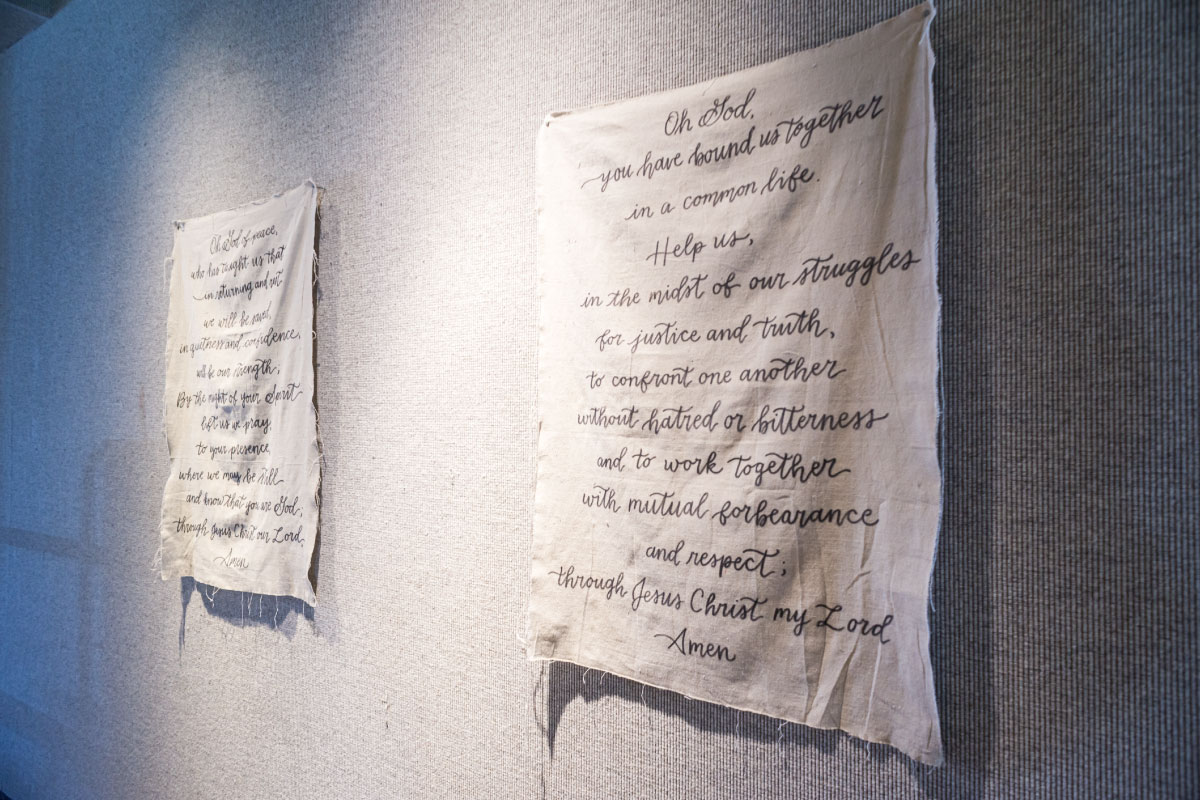 Oh God of peace,
who has taught us that
in returning and rest
we will be saved,
in quietness and confidence,
will be our strength;
By the might of your Spirit
lift us we pray,
to your presence,
where we may be still
and know that you are God;
through Jesus Christ our Lord,
Amen
Oh God,
you have bound us together
in a common life.
Help us,
in the midst of our struggles
for justice and truth,
to confront one another
without hatred or bitterness
and to work together
with mutual forbearance
and respect;
through Jesus Christ my Lord
Amen